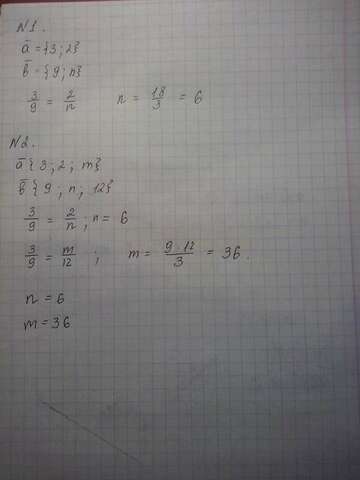 N1.
ā = {3; 2}
b̄ = {9; n}
3/9 = 2/n n = 18/3 = 6
N2.
ā {3; 2; m}
b̄ {9; n, 12}
3/9 = 2/n; n = 6
3/9 = m/12 ; m = 9·12/3 = 36.
n = 6
m = 36